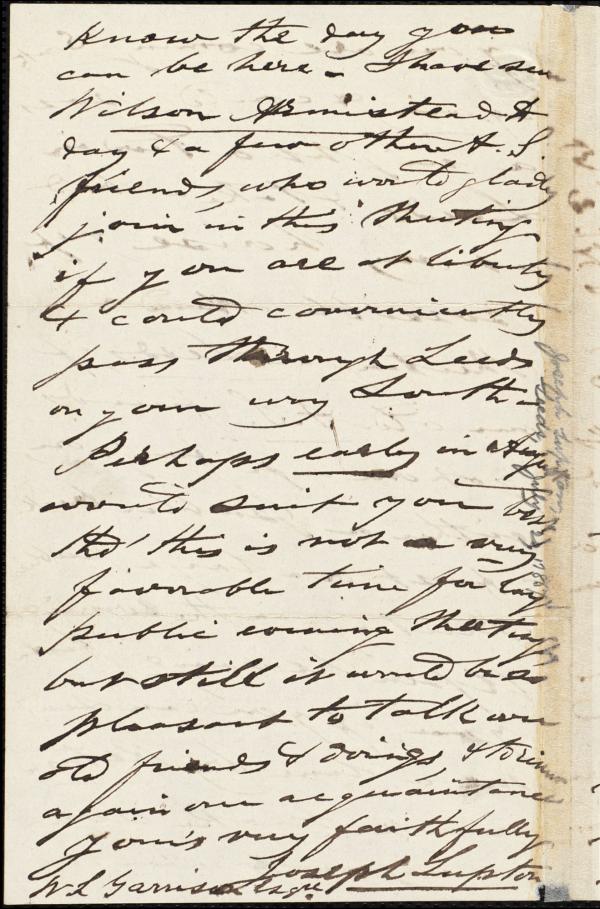 Know the day you
can be here - I have seen
Wilson Armistead to
day & a few other A. S
friends, who would gladly
join in this Meeting
if you are at liberty
& could conveniently
pass through Leeds
on your way South -
Perhaps early in Augt
would suit you best
tho' this is not a very
favorable time for
public evening Meetings
but still it would be so
pleasant to talk over
old friends & doings, & to renew
again our acquaintance
Your's very faithfully
Joseph Lupton
W L Garrison Esqre
Joseph Lupton
Leeds July